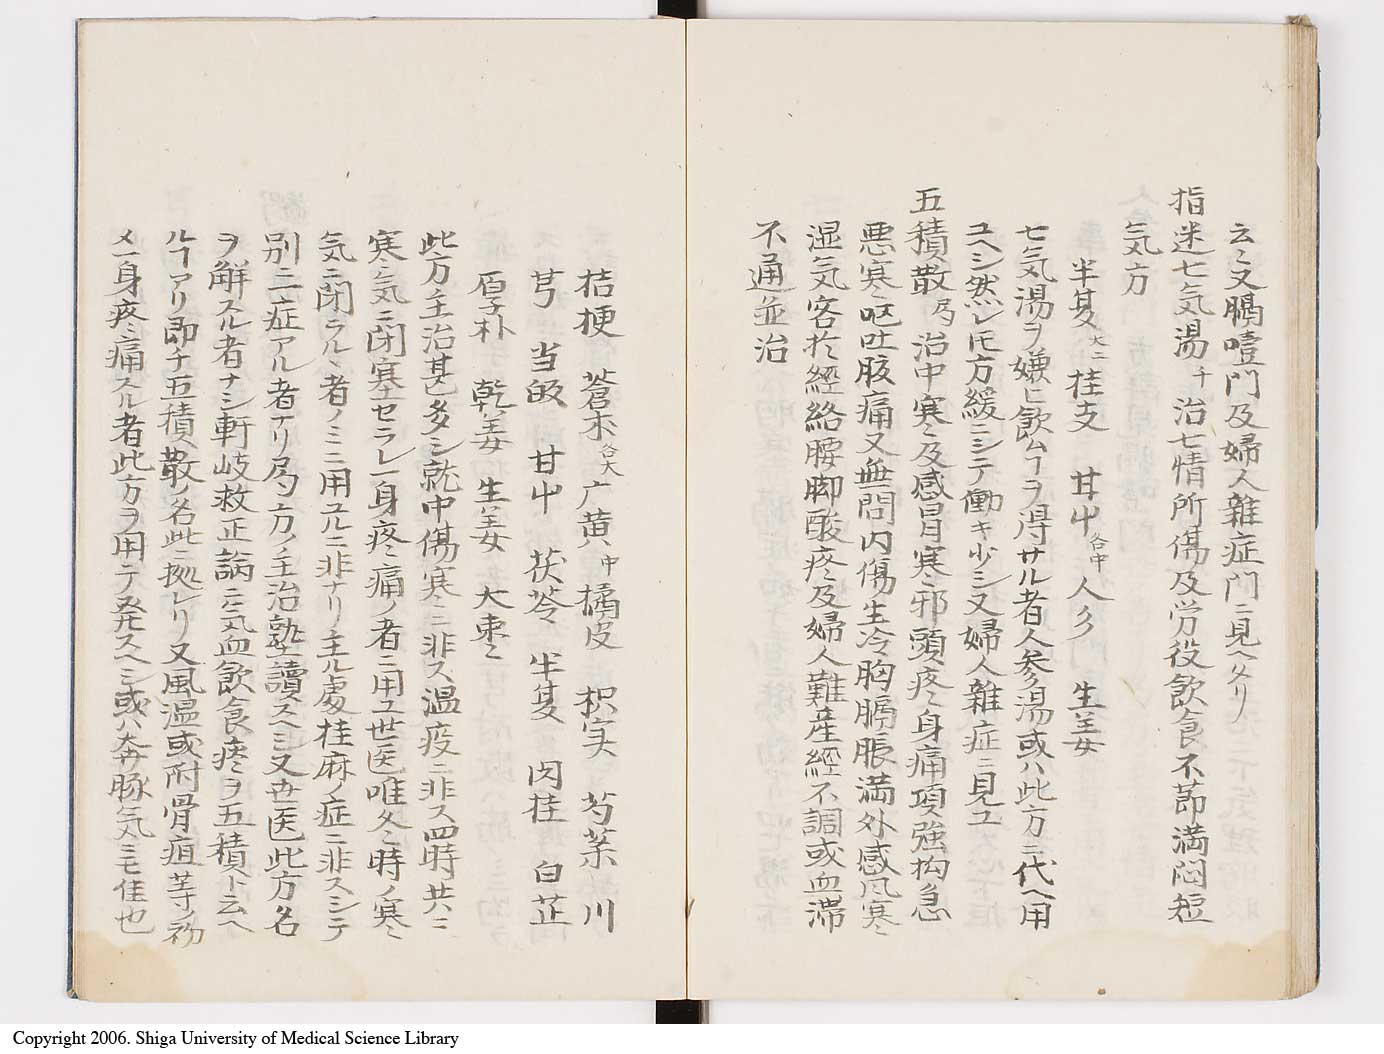 云〻又膈噎門及婦人雜症門ニ見ヘタリ
指迷七気湯 千 治七情所傷及労役飲食不節満悶短
気方
半夏 大二 桂支 甘艸 各中 人参 生姜
七気湯ヲ嫌ヒ飲ムヿヲ得サル者人参湯或ハ此方ニ代ヘ用
ユヘシ然レ𪜈方緩ニシテ働キ少シ又婦人雜症ニ見ユ
五積散 局 治中寒及感冒寒邪頭疼身痛項強拘急
悪寒呕吐肢痛又無問内傷生冷胸膈脹満外感风寒
湿気客於經絡腰脚酸疼及婦人難産經不調或血滞
不通並治
桔梗 蒼朮 各大 广黄 中 橘皮 枳実 芍薬 川
芎 当皈 甘艸 茯苓 半夏 肉桂 白芷
厚朴 乾姜 生姜 大棗
此方主治甚多シ就中傷寒ニ非ス温疫ニ非ス四時共ニ
寒気ニ閉塞セラレ一身疼痛ノ者ニ用ユ世医唯冬時ノ寒
気ニ閉ラルヽ者ノミニ用ユルニ非ナリ主ル處桂麻ノ症ニ非スシテ
別ニ一症アル者ナリ局方ノ主治熟讀スヘシ又世医此方名
ヲ解スル者ナシ軒岐救正論ニ気血飲食痰ヲ五積ト云ヘ
ルヿアリ即チ五積散ノ名此ニ拠レリ又風温或附骨疽等ノ初
メ一身疼痛スル者此方ヲ用テ発スヘシ或ハ奔豚気ニモ佳也
Copyright 2006. Shiga University of Medical Science Library